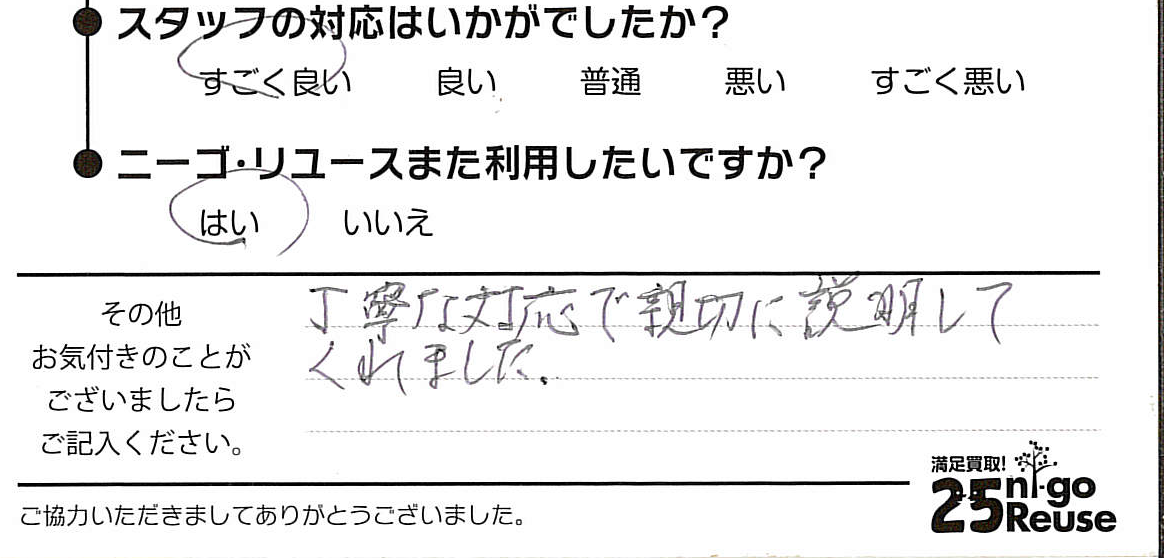 スタッフの対応はいかがでしたか？
すごく良い 良い 普通 悪い すごく悪い
ニーゴ・リユースまた利用したいですか？
はい いいえ
その他
お気付きのことが
ございましたら
ご記入ください。
丁寧な対応で親切に説明して
くれました.
満足買取!
25 ni-go
Reuse
ご協力いただきましてありがとうございました。